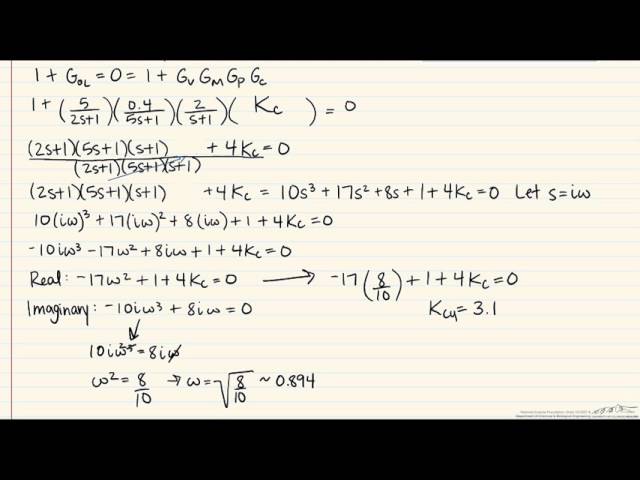 1 + G_OL = 0 = 1 + G_V G_M G_P G_C
1 + (5/(2s+1))(0.4/(5s+1))(2/(s+1))( K_C ) = 0
(2s+1)(5s+1)(s+1) + 4K_C = 0
(2s+1)(5s+1)(s+1)
(2s+1)(5s+1)(s+1) + 4K_C = 10s³ + 17s² + 8s + 1 + 4K_C = 0 Let s = iω
10(iω)³ + 17(iω)² + 8(iω) + 1 + 4K_C = 0
-10iω³ - 17ω² + 8iω + 1 + 4K_C = 0
Real: -17ω² + 1 + 4K_C = 0 → -17(8/10) + 1 + 4K_C = 0
Imaginary: -10iω³ + 8iω = 0 K_CU = 3.1
10iω² = 8iω
ω² = 8/10 → ω = √(8/10) ~ 0.894